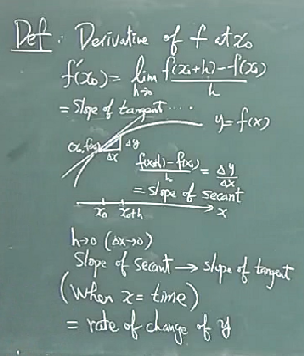 Def. Derivative of f at x₀
f'(x₀) = lim h→0 f(x₀+h)-f(x₀) / h
= slope of tangent .....
y = f(x)
Δy
Δx
f(x₀+h)-f(x₀) / h = Δy / Δx
= slope of secant
x₀ x₀+h x
h→0 (Δx→0)
Slope of secant → slope of tangent
(when x = time)
= rate of change of y